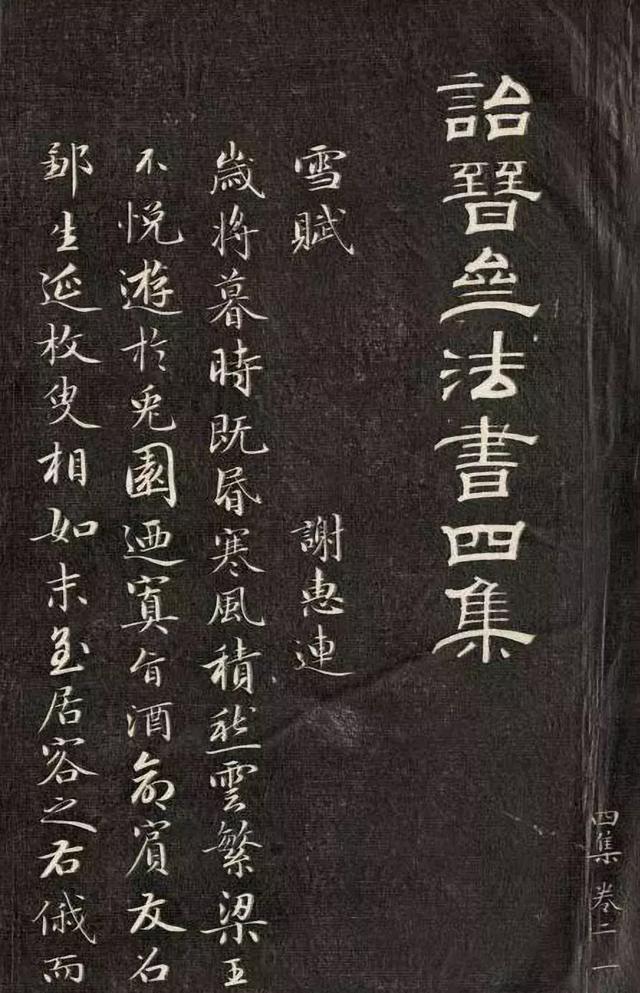 詒晉亝法書四集
雪賦　謝惠連
歲將暮時既昬寒風積愁雲繁梁王
不悅遊於兔園迺寘旨酒命賓友召
鄒生延枚叟相如末至居客之右俄而
四集 卷二 一